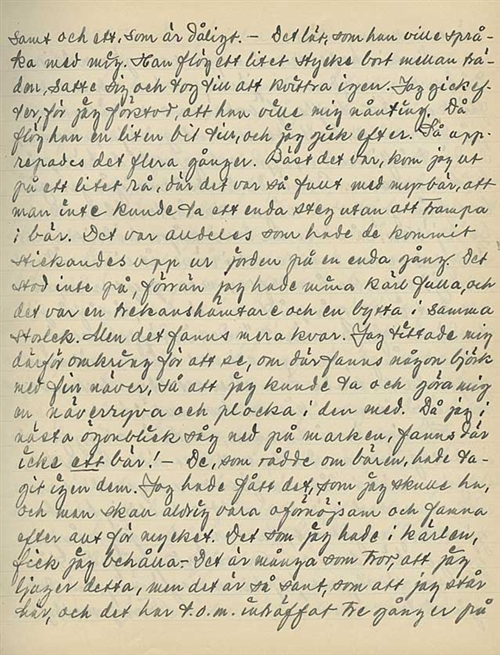 samt och ett, som är dåligt. – Det lät, som han ville språ-
ka med mig. Han flög ett litet stycke bort mellan trä-
den, satte sig och tog till att kvittra igen. Jag gick ef-
ter, för jag förstod, att han ville mig nånting. Då
flög han en liten bit till, och jag gick efter. Så upp-
repades det flera gånger. Bäst det var, kom jag ut
på ett litet rå, där det var så fullt med myrbär, att
man inte kunde ta ett enda steg utan att trampa
i bär. Det var alldeles som hade de kommit
stickandes upp ur jorden på en enda gång. Det
stod inte på, förrän jag hade mina kärl fulla, och
det var en trekanshämtare och en bytta i samma
storlek. Men det fanns mera kvar. Jag tittade mig
därför omkring för att se, om där fanns någon björk
med fin näver, så att jag kunde ta och göra mig
en näverryva och plocka i den med. Då jag i
nästa ögonblick såg ned på marken, fanns där
icke ett bär! – De, som rådde om bären, hade ta-
git igen dem. Jag hade fått det, som jag skulle ha,
och man skall aldrig vara oförnöjsam och famna
efter allt för mycket. Det som jag hade i kärlen,
fick jag behålla. – Det är många som tror, att jag
ljuger detta, men det är så sant, som att jag står
här, och det har t.o.m. inträffat tre gånger på